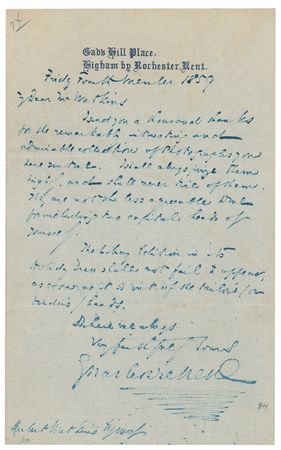 Gad's Hill Place,
Higham by Rochester, Kent.
Friday Fourth November 1859
My Dear Mr Watkins
I send you a thousand thanks
for the remarkably interesting and
admirable collection of Photographs you
have sent me. I shall always prize them
highly, and shall never tire of them.
They are not the less agreeable to me
for including two capital heads of
yourself.
The Library Edition in its
holiday dress shall not fail to appear,
as soon as it is out of the tailor's (or
binder's) hands.
Believe me always
Very faithfully Yours
Charles Dickens
Herbert Watkins Esquire